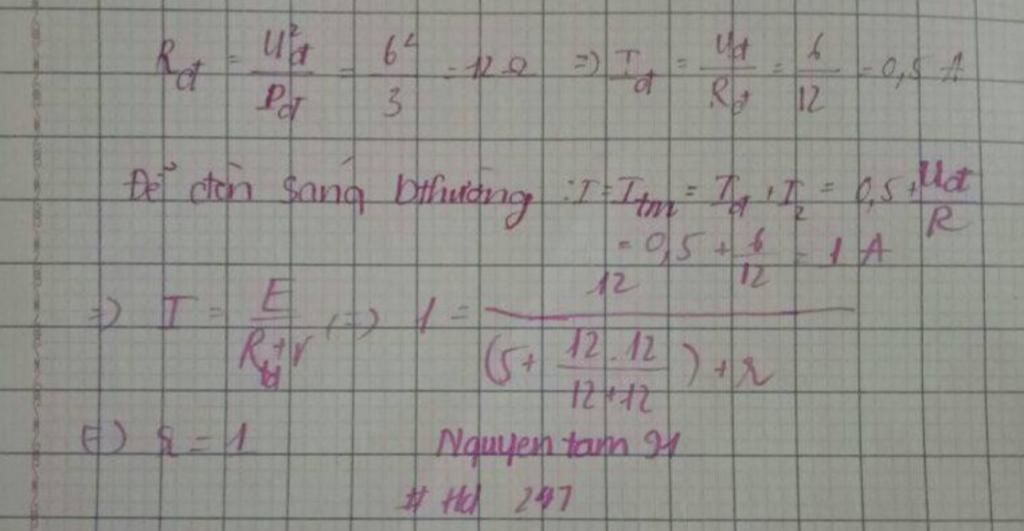 Rđ = U²đ/Pđ = 6²/3 = 12 Ω => Iđ = Uđ/Rđ = 6/12 = 0,5 A
Để đèn sáng bthường : I = Itm = Iđ + I2 = 0,5 + Uđ/R
= 0,5 + 6/12 = 1 A
=> I = E/(Rtđ+r) (=> 1 = 12/((5 + 12.12/(12+12)) + r)
(=) r = 1
Nguyen tam 91
# Hd 247